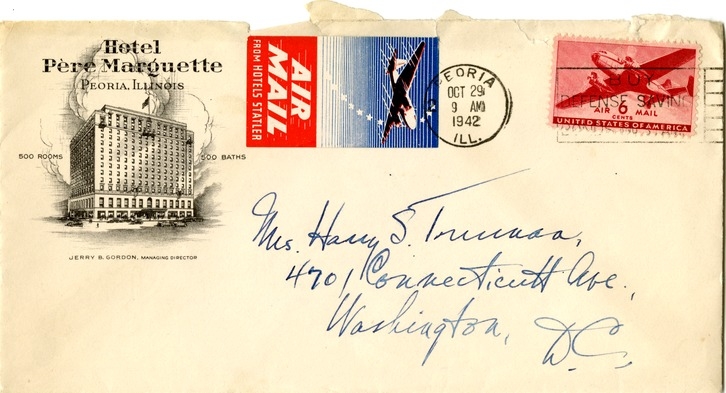 Hotel
Père Marquette
PEORIA, ILLINOIS
500 ROOMS
500 BATHS
JERRY B. GORDON, MANAGING DIRECTOR
AIR
MAIL
FROM HOTELS STATLER
PEORIA
OCT 29
9 AM
1942
ILL.
BUY
DEFENSE SAVINGS
AIR 6 MAIL
CENTS
UNITED STATES OF AMERICA
Mrs. Harry S. Truman,
4701 Connecticutt Ave.,
Washington,
D.C.